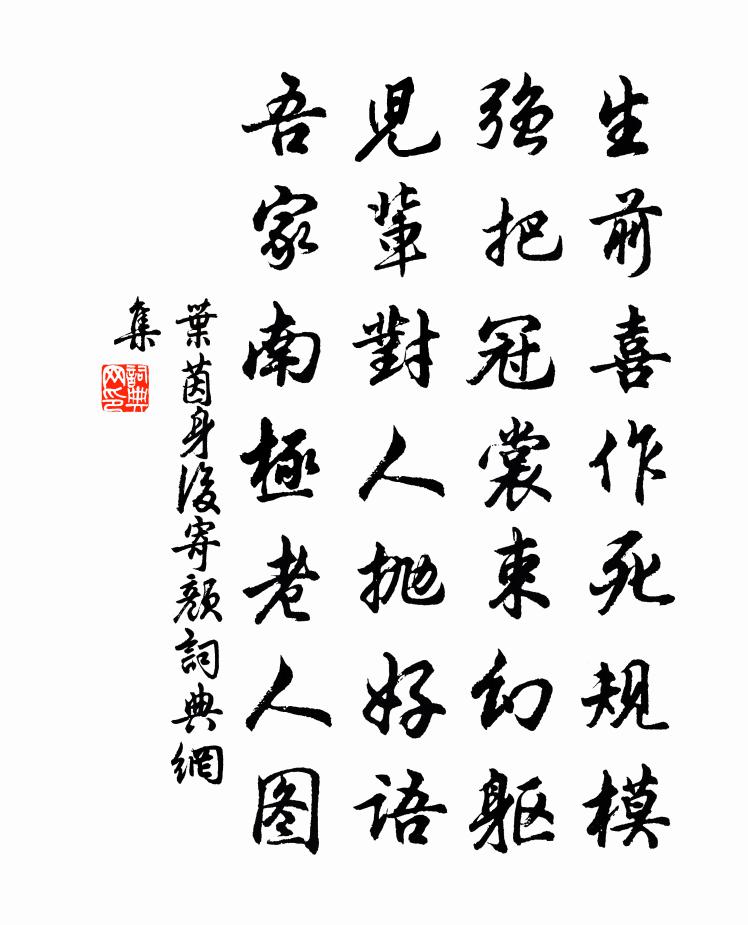 生前喜作死規模
強把冠裳束幻軀
児輩對人抛好語
吾家南極老人图
葉茵身後寄顏詞典網
集
詞典
网印